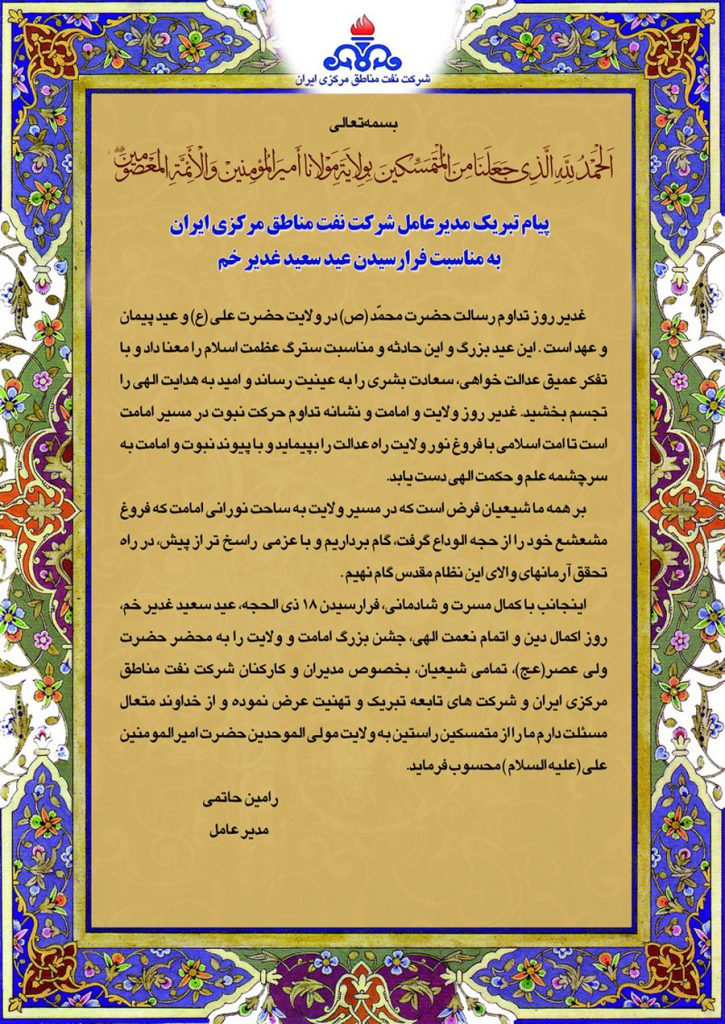 شرکت نفت مناطق مرکزی ایران
بسمه‌تعالی
اَلحَمدُ لِلّهِ الَّذی جَعَلَنا مِنَ المُتَمَسِّکینَ بِوِلایَةِ مَولانا أَمیرِ المُؤمِنینَ وَالأَئِمَّةِ المَعصُومینَ
پیام تبریک مدیرعامل شرکت نفت مناطق مرکزی ایران
به مناسبت فرارسیدن عید سعید غدیر خم
غدیر روز تداوم رسالت حضرت محمّد (ص) در ولایت حضرت علی (ع) و عید پیمان
و عهد است . این عید بزرگ و این حادثه و مناسبت سترگ عظمت اسلام را معنا داد و با
تفکر عمیق عدالت خواهی، سعادت بشری را به عینیت رساند و امید به هدایت الهی را
تجسم بخشید. غدیر روز ولایت و امامت و نشانه تداوم حرکت نبوت در مسیر امامت
است تا امت اسلامی با فروغ نور ولایت راه عدالت را بپیماید و با پیوند نبوت و امامت به
سرچشمه علم و حکمت الهی دست یابد.
بر همه ما شیعیان فرض است که در مسیر ولایت به ساحت نورانی امامت که فروغ
مشعشع خود را از حجه الوداع گرفت، گام برداریم و با عزمی راسخ تر از پیش، در راه
تحقق آرمانهای والای این نظام مقدس گام نهیم.
اینجانب با کمال مسرت و شادمانی، فرارسیدن ۱۸ ذی الحجه، عید سعید غدیر خم،
روز اکمال دین و اتمام نعمت الهی، جشن بزرگ امامت و ولایت را به محضر حضرت
ولی عصر(عج)، تمامی شیعیان، بخصوص مدیران و کارکنان شرکت نفت مناطق
مرکزی ایران و شرکت های تابعه تبریک و تهنیت عرض نموده و از خداوند متعال
مسئلت دارم ما را از متمسکین راستین به ولایت مولی الموحدین حضرت امیر المومنین
علی (علیه السلام) محسوب فرماید.
رامین حاتمی
مدیر عامل